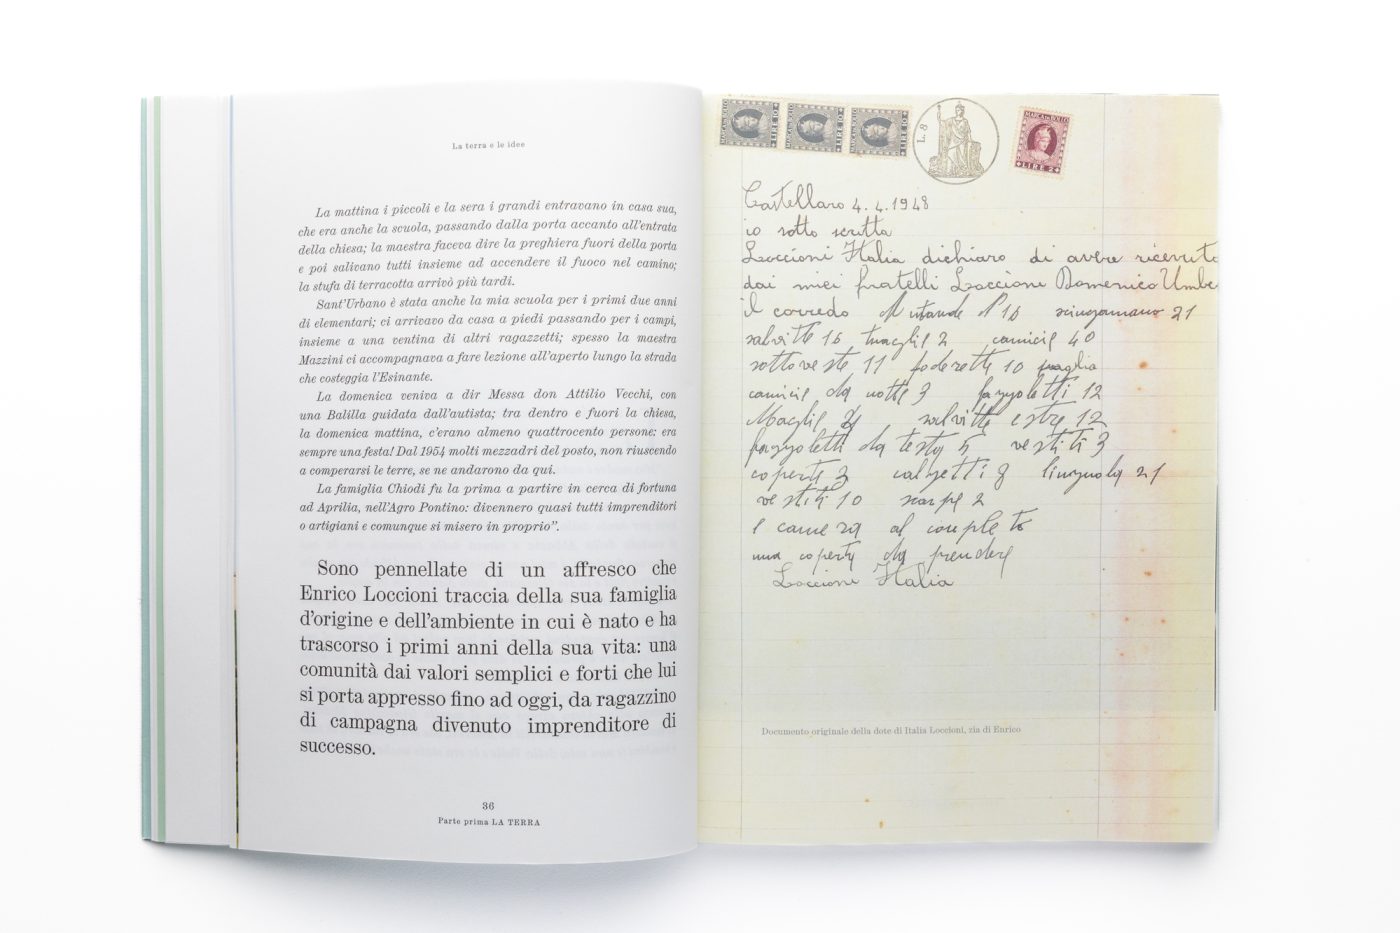 La terra e le idee
La mattina i piccoli e la sera i grandi entravano in casa sua,
che era anche la scuola, passando dalla porta accanto all'entrata
della chiesa; la maestra faceva dire la preghiera fuori della porta
e poi salivano tutti insieme ad accendere il fuoco nel camino;
la stufa di terracotta arrivò più tardi.
Sant'Urbano è stata anche la mia scuola per i primi due anni
di elementari; ci arrivavo da casa a piedi passando per i campi,
insieme a una ventina di altri ragazzetti; spesso la maestra
Mazzini ci accompagnava a fare lezione all'aperto lungo la strada
che costeggia l'Esinante.
La domenica veniva a dir Messa don Attilio Vecchi, con
una Balilla guidata dall'autista; tra dentro e fuori la chiesa,
la domenica mattina, c'erano almeno quattrocento persone: era
sempre una festa! Dal 1954 molti mezzadri del posto, non riuscendo
a comperarsi le terre, se ne andarono da qui.
La famiglia Chiodi fu la prima a partire in cerca di fortuna
ad Aprilia, nell'Agro Pontino: dicennero quasi tutti imprenditori
o artigiani e comunque si misero in proprio".
Sono pennellate di un affresco che
Enrico Loccioni traccia della sua famiglia
d'origine e dell'ambiente in cui è nato e ha
trascorso i primi anni della sua vita: una
comunità dai valori semplici e forti che lui
si porta appresso fino ad oggi, da ragazzino
di campagna divenuto imprenditore di
successo.
36
Parte prima LA TERRA
MARCA DA BOLLO LIRE 10
MARCA DA BOLLO LIRE 10
MARCA DA BOLLO LIRE 10
L. 8
MARCA DA BOLLO
LIRE 2
Castellaro 4.4.1948
io sotto scritta
Loccioni Italia dichiaro di avere ricevuto
dai miei fratelli Loccioni Domenico Umbe
il corredo Mutande N 16 sciugamano 21
salvitte 16 tvaglie 2 camicie 40
sottoveste 11 foderette 10 maglia
camicie da notte 3 fazzoletti 12
Maglie salvitte estre 12
fazzoletti da testa 5 vestiti 3
coperte 3 calzetti 8 linzuola 21
vestiti 10 scarpe 2
e camera al completo
una coperta da prendere
Loccioni Italia
Documento originale della dote di Italia Loccioni, zia di Enrico